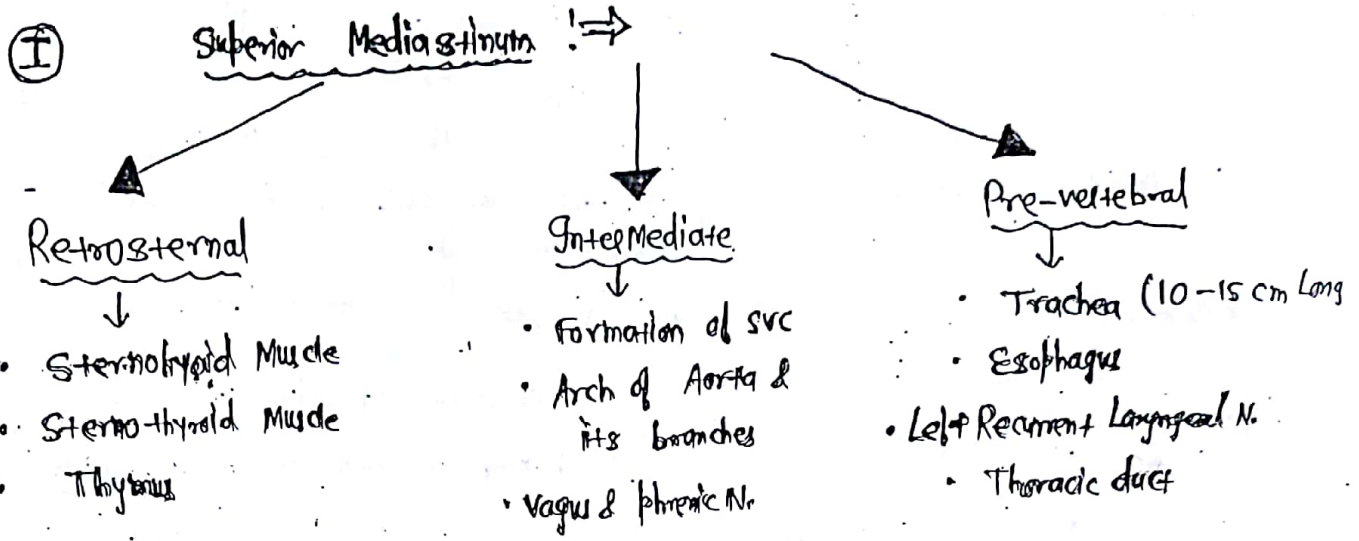 I Superior Mediastinum !⇒
Retrosternal
• Sternohyoid Muscle
• Sterno-thyroid Muscle
• Thymus
Intermediate
• Formation of SVC
• Arch of Aorta &
its branches
• Vagus & phrenic N.
Pre-vertebral
• Trachea (10-15 cm Long
• Esophagus
• Left Recurrent Laryngeal N.
• Thoracic duct